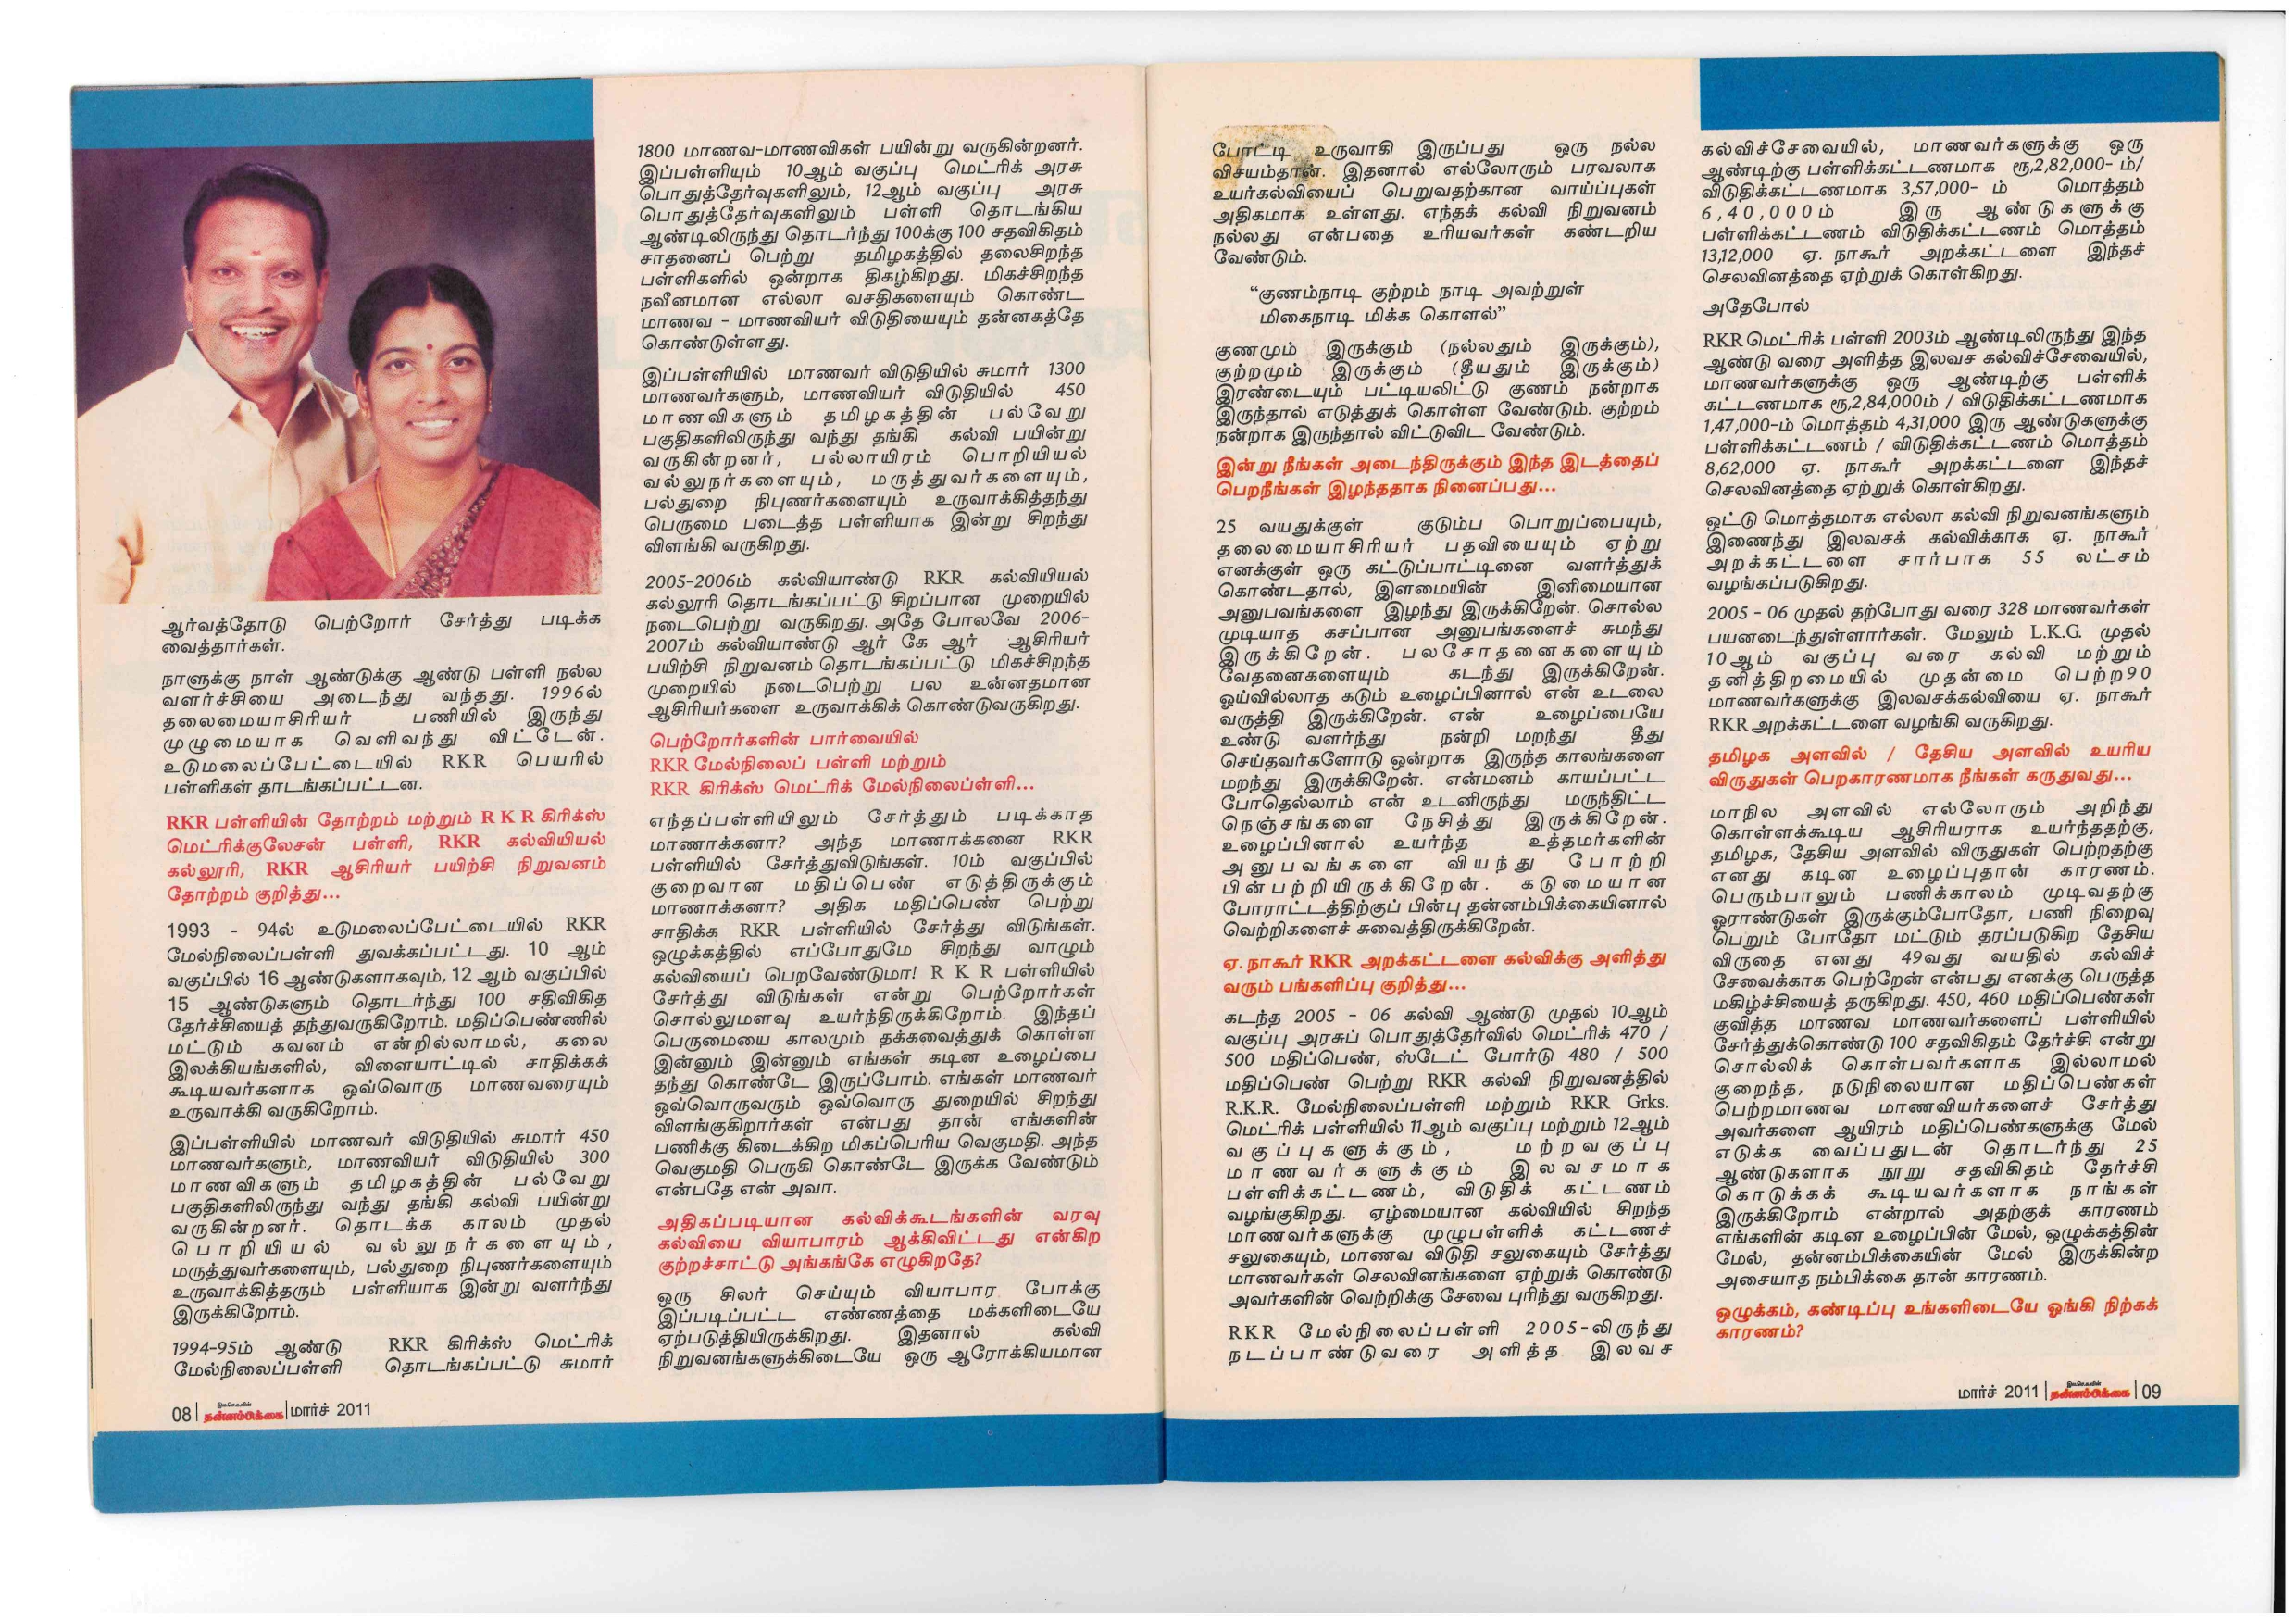 ஆர்வத்தோடு பெற்றோர் சேர்த்து படிக்க
வைத்தார்கள்.
நாளுக்கு நாள் ஆண்டுக்கு ஆண்டு பள்ளி நல்ல
வளர்ச்சியை அடைந்து வந்தது. 1996ல்
தலைமையாசிரியர் பணியில் இருந்து
முழுமையாக வெளிவந்து விட்டேன்.
உடுமலைப்பேட்டையில் RKR பெயரில்
பள்ளிகள் தாடங்கப்பட்டன.
RKR பள்ளியின் தோற்றம் மற்றும் R K R கிரிக்ஸ்
மெட்ரிக்குலேசன் பள்ளி, RKR கல்வியியல்
கல்லூரி, RKR ஆசிரியர் பயிற்சி நிறுவனம்
தோற்றம் குறித்து...
1993 - 94ல் உடுமலைப்பேட்டையில் RKR
மேல்நிலைப்பள்ளி துவக்கப்பட்டது. 10 ஆம்
வகுப்பில் 16 ஆண்டுகளாகவும், 12 ஆம் வகுப்பில்
15 ஆண்டுகளும் தொடர்ந்து 100 சதிவிகித
தேர்ச்சியைத் தந்துவருகிறோம். மதிப்பெண்ணில்
மட்டும் கவனம் என்றில்லாமல், கலை
இலக்கியங்களில், விளையாட்டில் சாதிக்கக்
கூடியவர்களாக ஒவ்வொரு மாணவரையும்
உருவாக்கி வருகிறோம்.
இப்பள்ளியில் மாணவர் விடுதியில் சுமார் 450
மாணவர்களும், மாணவியர் விடுதியில் 300
மாணவிகளும் தமிழகத்தின் பல்வேறு
பகுதிகளிலிருந்து வந்து தங்கி கல்வி பயின்று
வருகின்றனர். தொடக்க காலம் முதல்
பொறியியல் வல்லுநர்களையும்,
மருத்துவர்களையும், பல்துறை நிபுணர்களையும்
உருவாக்கித்தரும் பள்ளியாக இன்று வளர்ந்து
இருக்கிறோம்.
1994-95ம் ஆண்டு RKR கிரிக்ஸ் மெட்ரிக்
மேல்நிலைப்பள்ளி தொடங்கப்பட்டு சுமார்
08 | இலசெ.க.வின் தன்னம்பிக்கை | மார்ச் 2011
1800 மாணவ-மாணவிகள் பயின்று வருகின்றனர்.
இப்பள்ளியும் 10ஆம் வகுப்பு மெட்ரிக் அரசு
பொதுத்தேர்வுகளிலும், 12ஆம் வகுப்பு அரசு
பொதுத்தேர்வுகளிலும் பள்ளி தொடங்கிய
ஆண்டிலிருந்து தொடர்ந்து 100க்கு 100 சதவிகிதம்
சாதனைப் பெற்று தமிழகத்தில் தலைசிறந்த
பள்ளிகளில் ஒன்றாக திகழ்கிறது. மிகச்சிறந்த
நவீனமான எல்லா வசதிகளையும் கொண்ட
மாணவ - மாணவியர் விடுதியையும் தன்னகத்தே
கொண்டுள்ளது.
இப்பள்ளியில் மாணவர் விடுதியில் சுமார் 1300
மாணவர்களும், மாணவியர் விடுதியில் 450
மாணவிகளும் தமிழகத்தின் பல்வேறு
பகுதிகளிலிருந்து வந்து தங்கி கல்வி பயின்று
வருகின்றனர், பல்லாயிரம் பொறியியல்
வல்லுநர்களையும், மருத்துவர்களையும்,
பல்துறை நிபுணர்களையும் உருவாக்கித்தந்து
பெருமை படைத்த பள்ளியாக இன்று சிறந்து
விளங்கி வருகிறது.
2005-2006ம் கல்வியாண்டு RKR கல்வியியல்
கல்லூரி தொடங்கப்பட்டு சிறப்பான முறையில்
நடைபெற்று வருகிறது. அதே போலவே 2006-
2007ம் கல்வியாண்டு ஆர் கே ஆர் ஆசிரியர்
பயிற்சி நிறுவனம் தொடங்கப்பட்டு மிகச்சிறந்த
முறையில் நடைபெற்று பல உன்னதமான
ஆசிரியர்களை உருவாக்கிக் கொண்டுவருகிறது.
பெற்றோர்களின் பார்வையில்
RKR மேல்நிலைப் பள்ளி மற்றும்
RKR கிரிக்ஸ் மெட்ரிக் மேல்நிலைப்ள்ளி...
எந்தப்பள்ளியிலும் சேர்த்தும் படிக்காத
மாணாக்கனா? அந்த மாணாக்கனை RKR
பள்ளியில் சேர்த்துவிடுங்கள். 10ம் வகுப்பில்
குறைவான மதிப்பெண் எடுத்திருக்கும்
மாணாக்கனா? அதிக மதிப்பெண் பெற்று
சாதிக்க RKR பள்ளியில் சேர்த்து விடுங்கள்.
ஒழுக்கத்தில் எப்போதுமே சிறந்து வாழும்
கல்வியைப் பெறவேண்டுமா! R K R பள்ளியில்
சேர்த்து விடுங்கள் என்று பெற்றோர்கள்
சொல்லுமளவு உயர்ந்திருக்கிறோம். இந்தப்
பெருமையை காலமும் தக்கவைத்துக் கொள்ள
இன்னும் இன்னும் எங்கள் கடின உழைப்பை
தந்து கொண்டே இருப்போம். எங்கள் மாணவர்
ஒவ்வொருவரும் ஒவ்வொரு துறையில் சிறந்து
விளங்குகிறார்கள் என்பது தான் எங்களின்
பணிக்கு கிடைக்கிற மிகப்பெரிய வெகுமதி. அந்த
வெகுமதி பெருகி கொண்டே இருக்க வேண்டும்
என்பதே என் அவா.
அதிகப்படியான கல்விக்கூடங்களின் வரவு
கல்வியை வியாபாரம் ஆக்கிவிட்டது என்கிற
குற்றச்சாட்டு அங்கங்கே எழுகிறதே?
ஒரு சிலர் செய்யும் வியாபார போக்கு
இப்படிப்பட்ட எண்ணத்தை மக்களிடையே
ஏற்படுத்தியிருக்கிறது. இதனால் கல்வி
நிறுவனங்களுக்கிடையே ஒரு ஆரோக்கியமான
போட்டி உருவாகி இருப்பது ஒரு நல்ல
விசயம்தான். இதனால் எல்லோரும் பரவலாக
உயர்கல்வியைப் பெறுவதற்கான வாய்ப்புகள்
அதிகமாக உள்ளது. எந்தக் கல்வி நிறுவனம்
நல்லது என்பதை உரியவர்கள் கண்டறிய
வேண்டும்.
“குணம்நாடி குற்றம் நாடி அவற்றுள்
மிகைநாடி மிக்க கொளல்”
குணமும் இருக்கும் (நல்லதும் இருக்கும்),
குற்றமும் இருக்கும் (தீயதும் இருக்கும்)
இரண்டையும் பட்டியலிட்டு குணம் நன்றாக
இருந்தால் எடுத்துக் கொள்ள வேண்டும். குற்றம்
நன்றாக இருந்தால் விட்டுவிட வேண்டும்.
இன்று நீங்கள் அடைந்திருக்கும் இந்த இடத்தைப்
பெறநீங்கள் இழந்ததாக நினைப்பது...
25 வயதுக்குள் குடும்ப பொறுப்பையும்,
தலைமையாசிரியர் பதவியையும் ஏற்று
எனக்குள் ஒரு கட்டுப்பாட்டினை வளர்த்துக்
கொண்டதால், இளமையின் இனிமையான
அனுபவங்களை இழந்து இருக்கிறேன். சொல்ல
முடியாத கசப்பான அனுபங்களைச் சுமந்து
இருக்கிறேன். பலசோதனைகளையும்
வேதனைகளையும் கடந்து இருக்கிறேன்.
ஓய்வில்லாத கடும் உழைப்பினால் என் உடலை
வருத்தி இருக்கிறேன். என் உழைப்பையே
உண்டு வளர்ந்து நன்றி மறந்து தீது
செய்தவர்களோடு ஒன்றாக இருந்த காலங்களை
மறந்து இருக்கிறேன். என்மனம் காயப்பட்ட
போதெல்லாம் என் உடனிருந்து மருந்திட்ட
நெஞ்சங்களை நேசித்து இருக்கிறேன்.
உழைப்பினால் உயர்ந்த உத்தமர்களின்
அனுபவங்களை வியந்து போற்றி
பின்பற்றியிருக்கிறேன். கடுமையான
போராட்டத்திற்குப் பின்பு தன்னம்பிக்கையினால்
வெற்றிகளைச் சுவைத்திருக்கிறேன்.
ஏ. நாகூர் RKR அறக்கட்டளை கல்விக்கு அளித்து
வரும் பங்களிப்பு குறித்து...
கடந்த 2005 - 06 கல்வி ஆண்டு முதல் 10ஆம்
வகுப்பு அரசுப் பொதுத்தேர்வில் மெட்ரிக் 470 /
500 மதிப்பெண், ஸ்டேட் போர்டு 480 / 500
மதிப்பெண் பெற்று RKR கல்வி நிறுவனத்தில்
R.K.R. மேல்நிலைப்பள்ளி மற்றும் RKR Grks.
மெட்ரிக் பள்ளியில் 11ஆம் வகுப்பு மற்றும் 12ஆம்
வகுப்புகளுக்கும், மற்றவகுப்பு
மாணவர்களுக்கும் இலவசமாக
பள்ளிக்கட்டணம், விடுதிக் கட்டணம்
வழங்குகிறது. ஏழ்மையான கல்வியில் சிறந்த
மாணவர்களுக்கு முழுபள்ளிக் கட்டணச்
சலுகையும், மாணவ விடுதி சலுகையும் சேர்த்து
மாணவர்கள் செலவினங்களை ஏற்றுக் கொண்டு
அவர்களின் வெற்றிக்கு சேவை புரிந்து வருகிறது.
RKR மேல்நிலைப்பள்ளி 2005-லிருந்து
நடப்பாண்டுவரை அளித்த இலவச
கல்விச்சேவையில், மாணவர்களுக்கு ஒரு
ஆண்டிற்கு பள்ளிக்கட்டணமாக ரூ,2,82,000- ம்/
விடுதிக்கட்டணமாக 3,57,000- ம் மொத்தம்
6,40,000ம் இரு ஆண்டுகளுக்கு
பள்ளிக்கட்டணம் விடுதிக்கட்டணம் மொத்தம்
13,12,000 ஏ. நாகூர் அறக்கட்டளை இந்தச்
செலவினத்தை ஏற்றுக் கொள்கிறது.
அதேபோல்
RKR மெட்ரிக் பள்ளி 2003ம் ஆண்டிலிருந்து இந்த
ஆண்டு வரை அளித்த இலவச கல்விச்சேவையில்,
மாணவர்களுக்கு ஒரு ஆண்டிற்கு பள்ளிக்
கட்டணமாக ரூ,2,84,000ம் / விடுதிக்கட்டணமாக
1,47,000-ம் மொத்தம் 4,31,000 இரு ஆண்டுகளுக்கு
பள்ளிக்கட்டணம் / விடுதிக்கட்டணம் மொத்தம்
8,62,000 ஏ. நாகூர் அறக்கட்டளை இந்தச்
செலவினத்தை ஏற்றுக் கொள்கிறது.
ஒட்டு மொத்தமாக எல்லா கல்வி நிறுவனங்களும்
இணைந்து இலவசக் கல்விக்காக ஏ. நாகூர்
அறக்கட்டளை சார்பாக 55 லட்சம்
வழங்கப்படுகிறது.
2005 - 06 முதல் தற்போது வரை 328 மாணவர்கள்
பயனடைந்துள்ளார்கள். மேலும் L.K.G. முதல்
10ஆம் வகுப்பு வரை கல்வி மற்றும்
தனித்திறமையில் முதன்மை பெற்ற90
மாணவர்களுக்கு இலவசக்கல்வியை ஏ. நாகூர்
RKR அறக்கட்டளை வழங்கி வருகிறது.
தமிழக அளவில் / தேசிய அளவில் உயரிய
விருதுகள் பெறகாரணமாக நீங்கள் கருதுவது...
மாநில அளவில் எல்லோரும் அறிந்து
கொள்ளக்கூடிய ஆசிரியராக உயர்ந்ததற்கு,
தமிழக, தேசிய அளவில் விருதுகள் பெற்றதற்கு
எனது கடின உழைப்புதான் காரணம்.
பெரும்பாலும் பணிக்காலம் முடிவதற்கு
ஓராண்டுகள் இருக்கும்போதோ, பணி நிறைவு
பெறும் போதோ மட்டும் தரப்படுகிற தேசிய
விருதை எனது 49வது வயதில் கல்விச்
சேவைக்காக பெற்றேன் என்பது எனக்கு பெருத்த
மகிழ்ச்சியைத் தருகிறது. 450, 460 மதிப்பெண்கள்
குவித்த மாணவ மாணவர்களைப் பள்ளியில்
சேர்த்துக்கொண்டு 100 சதவிகிதம் தேர்ச்சி என்று
சொல்லிக் கொள்பவர்களாக இல்லாமல்
குறைந்த, நடுநிலையான மதிப்பெண்கள்
பெற்றமாணவ மாணவியர்களைச் சேர்த்து
அவர்களை ஆயிரம் மதிப்பெண்களுக்கு மேல்
எடுக்க வைப்பதுடன் தொடர்ந்து 25
ஆண்டுகளாக நூறு சதவிகிதம் தேர்ச்சி
கொடுக்கக் கூடியவர்களாக நாங்கள்
இருக்கிறோம் என்றால் அதற்குக் காரணம்
எங்களின் கடின உழைப்பின் மேல், ஒழுக்கத்தின்
மேல், தன்னம்பிக்கையின் மேல் இருக்கின்ற
அசையாத நம்பிக்கை தான் காரணம்.
ஒழுக்கம், கண்டிப்பு உங்களிடையே ஓங்கி நிற்கக்
காரணம்?
மார்ச் 2011 | இலசெ.க.வின் தன்னம்பிக்கை | 09